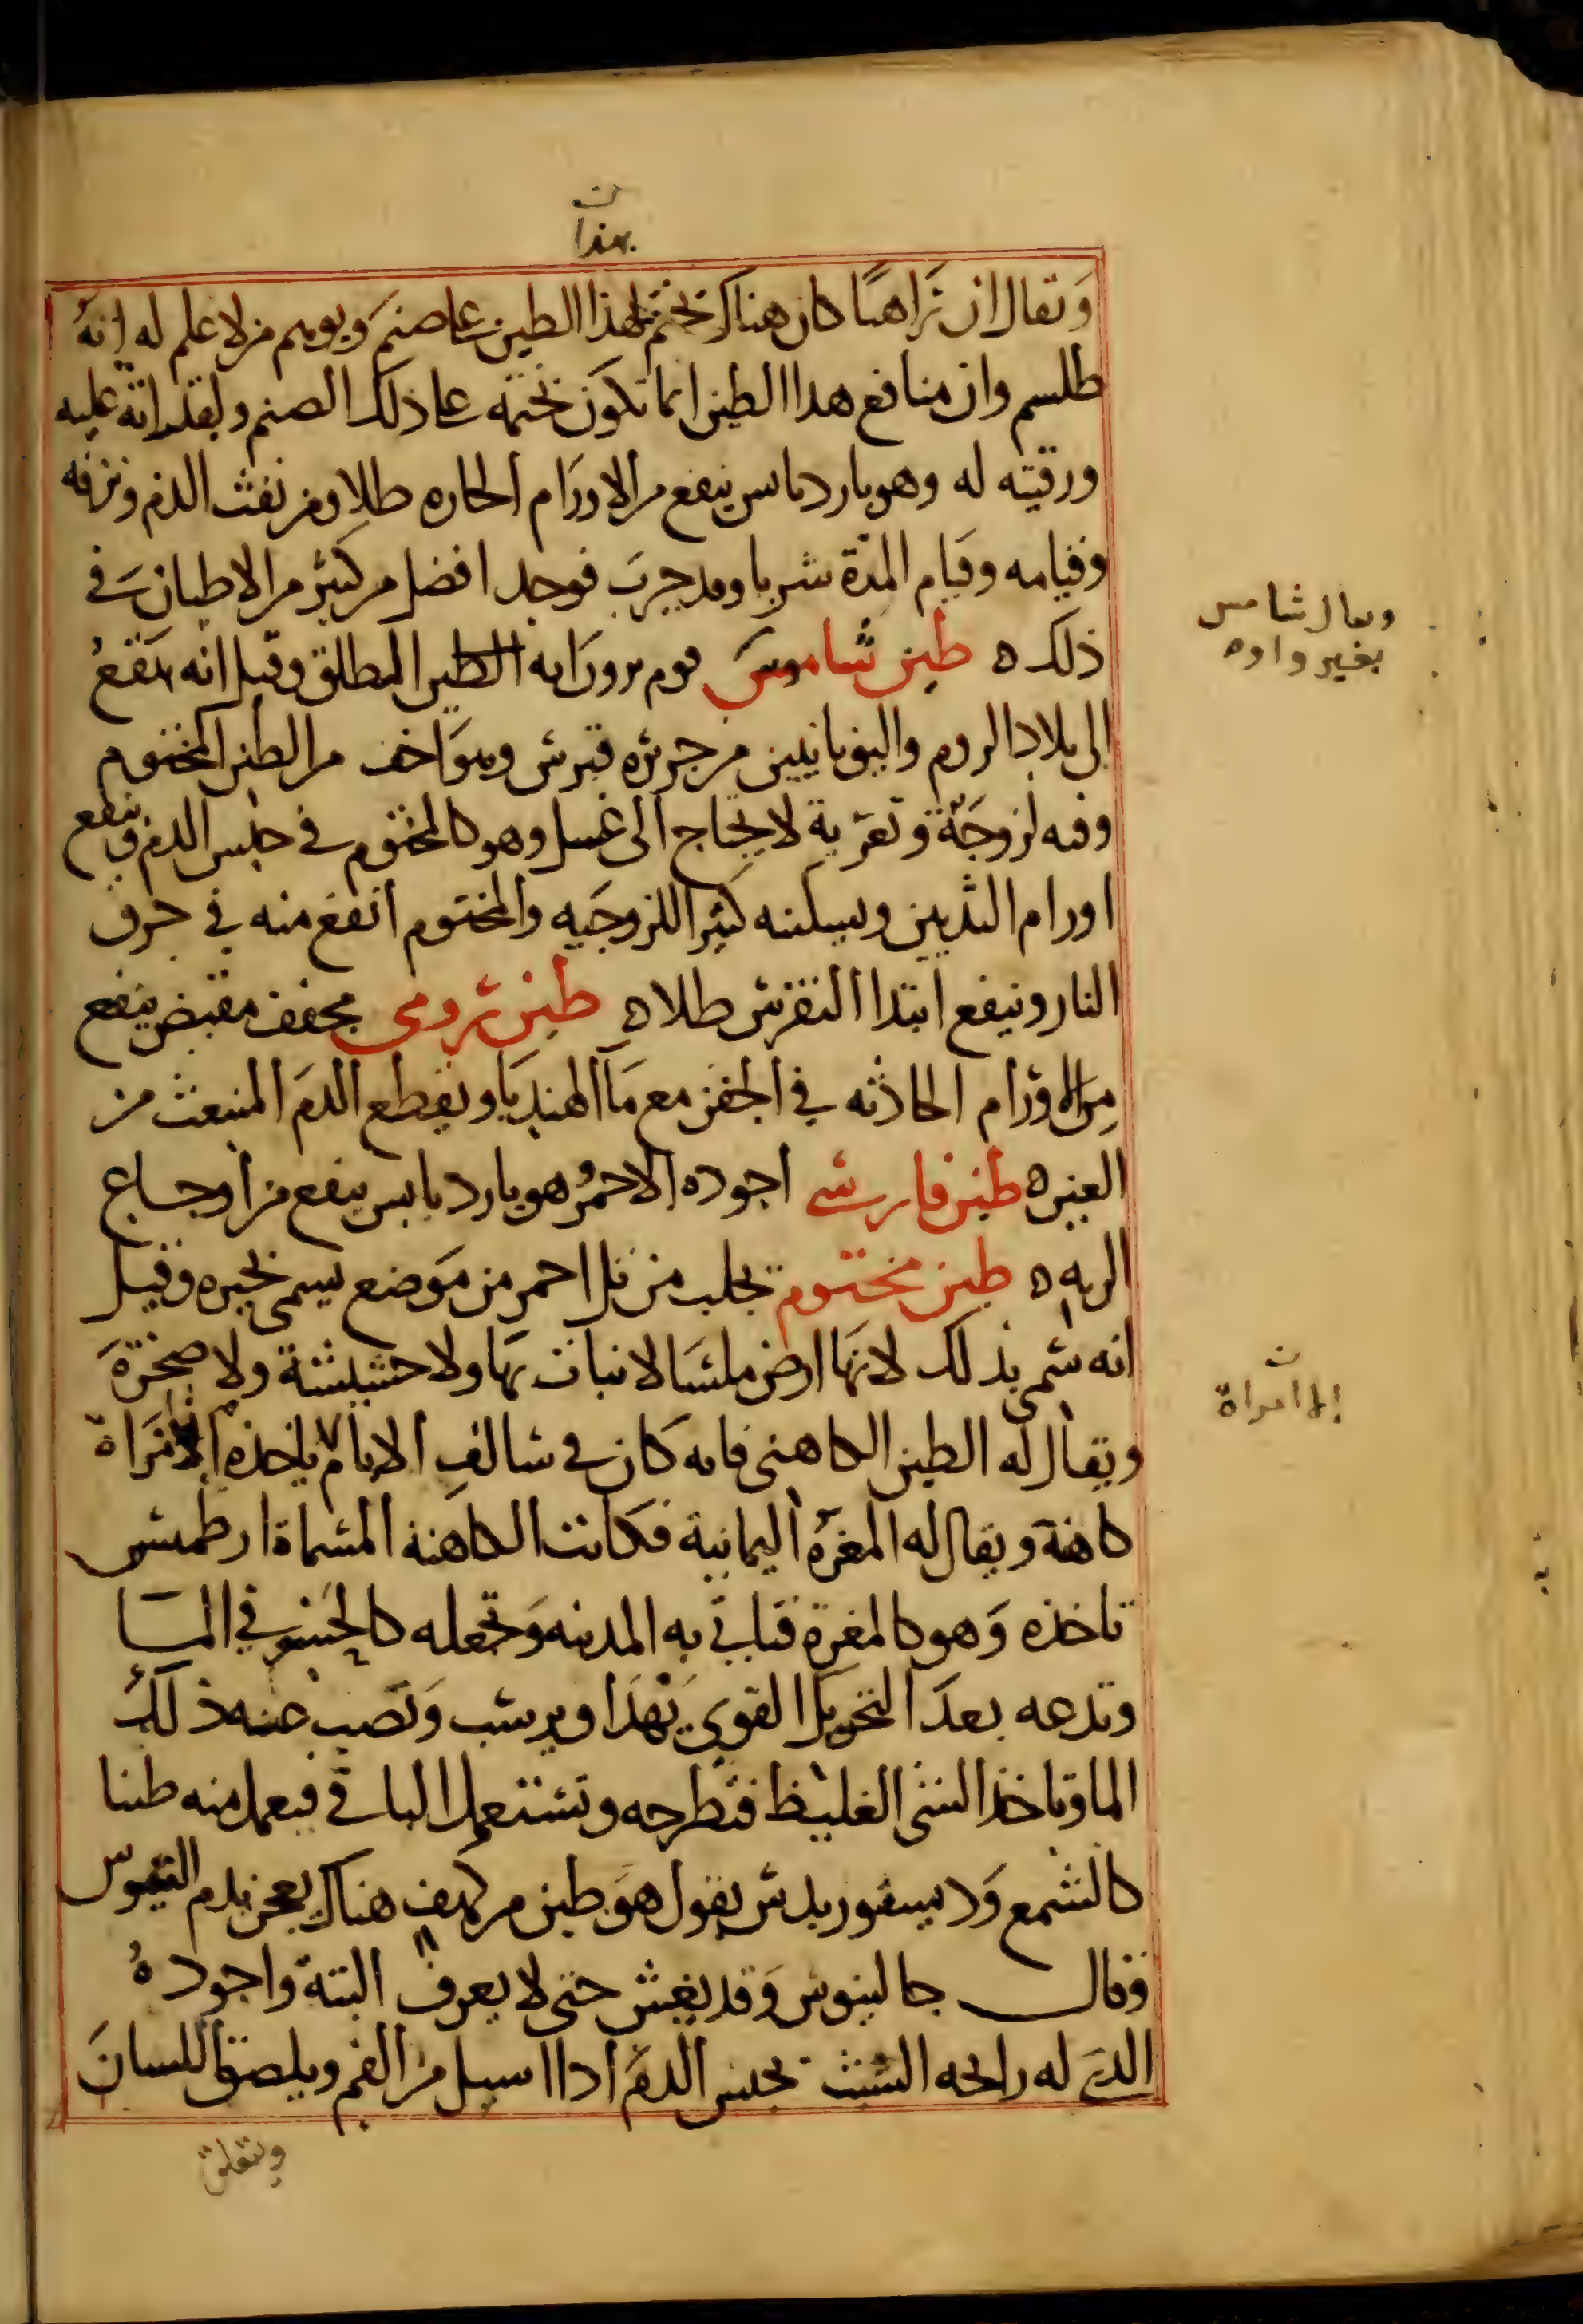 بهذا
ويقال ان راهبا كان هناك يختم لهذا الطين على صنم ويوهم من لا علم له انه
طلسم وان منافع هذا الطين انما تكون بختمه على ذلك الصنم
ورقيته له وهو بارد يابس ينفع من الاورام الحاره طلا ومن نفث الدم ونزفه
وقيامه وقيام المدة شربا وقد جرب فوجد افضل من كثير من الاطيان في
ذلك ه طين شاموس قوم يرون انه الطين المطلق وقيل انه يقع
الى بلاد الروم واليونانيين من جزيره قبرس وهو اخف من الطين المختوم
وفيه لزوجة وتغرية لا يحتاج الى غسل وهو كالمختوم في حبس الدم وينفع
اورام الثديين ويسكنه كثير اللزوجيه والمختوم انفع منه في حرق
النار وينفع ابتدا النقرس طلا ه طين رومي مجفف مقبض ينفع
من الاورام الحادثه في الجفن مع ما الهندبا ويقطع الدم المنبعث من
العين ه طين فارسي اجوده الاحمر وهو بارد يابس ينفع من اوجاع
الريه ه طين مختوم تجلب من تل احمر من موضع يسمى بحيره وقيل
انه سمي بذلك لانها ارض ملسا لا نبات بها ولا حشيشة ولا صخرة
ويقال له الطين الكاهني فانه كان في سالف الايام ياخذه امراة
كاهنة ويقال له المغرة اليمانية فكانت الكاهنة المسماة ارطمس
تاخذه وهو كالمغرة فتاتي به المدينه وتجعله كالحسو في الما
وتدعه بعد التحريك القوي يهدا ويرسب وتصب عنه ذلك
الما وتاخذ الشي الغليظ فتطرحه وتستعمل الباقي فيعمل منه طينا
كالشمع وديسقوريدس يقول هو طين من كهف هناك يعجن بدم التيوس
وقال جالينوس وقد يغش حتى لا يعرف البتة واجوده
الذي له رايحه الشبث تحبس الدم اذا اسيل من الفم ويلصق اللسان
ويتعلق
ويقال شامس
بغير واو ه
الى امراة